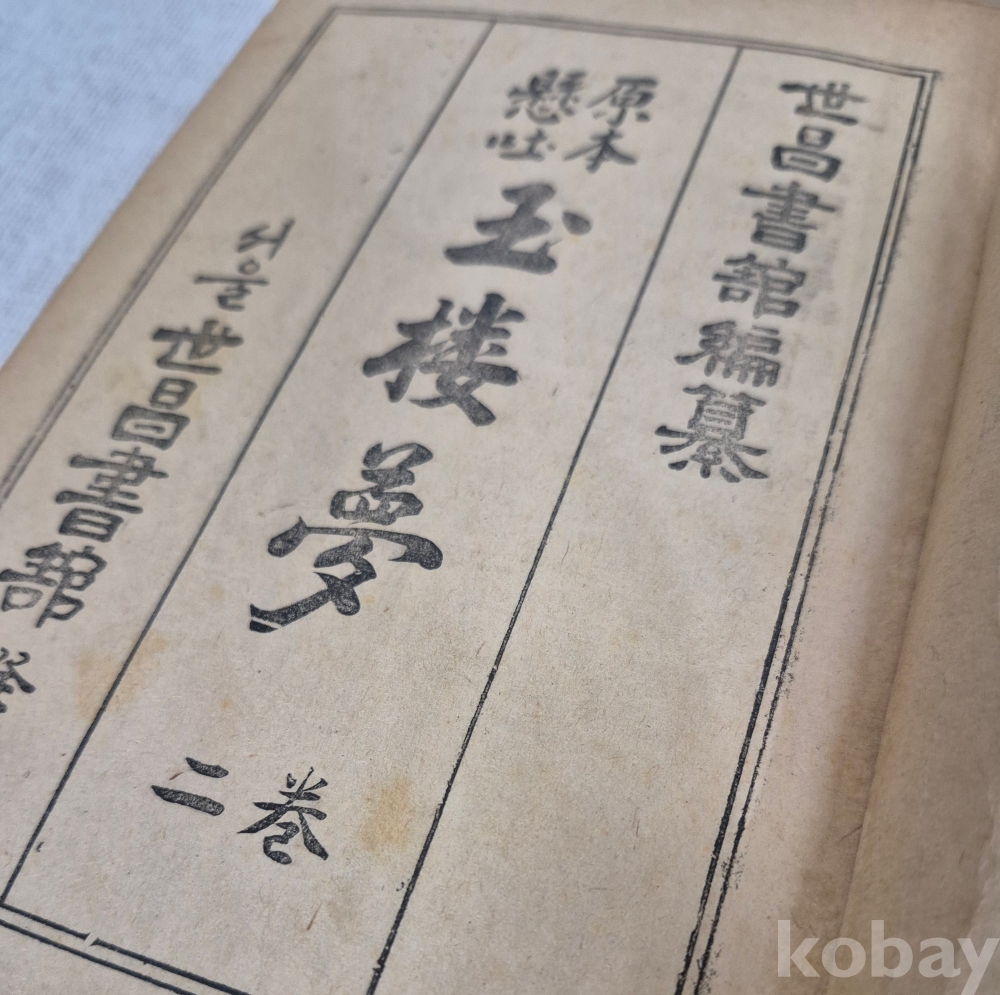 世昌書舘編纂
原本
懸吐
玉楼夢
卷二
서울 世昌書舘 發
kobay